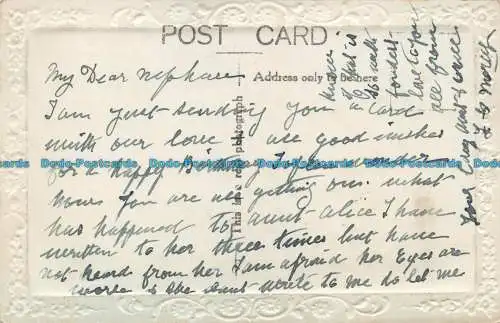 POST CARD
Address only to be here
This space for photograph
My Dear nephew
I am just sending you a card
with our love & all good wishes
for a happy Birthday I often wonder
hows you are all getting on. what
has happened to aunt alice I have
written to her three times but have
not heard from her I am afraid her Eyes are
worse & she cant write to me do let me
know
what is
fondest
love to you
all from
your aunt & uncle
Dodo-Postcards Dodo-Postcards Dodo-Postcards Dodo-Postcards Dodo-Postcards